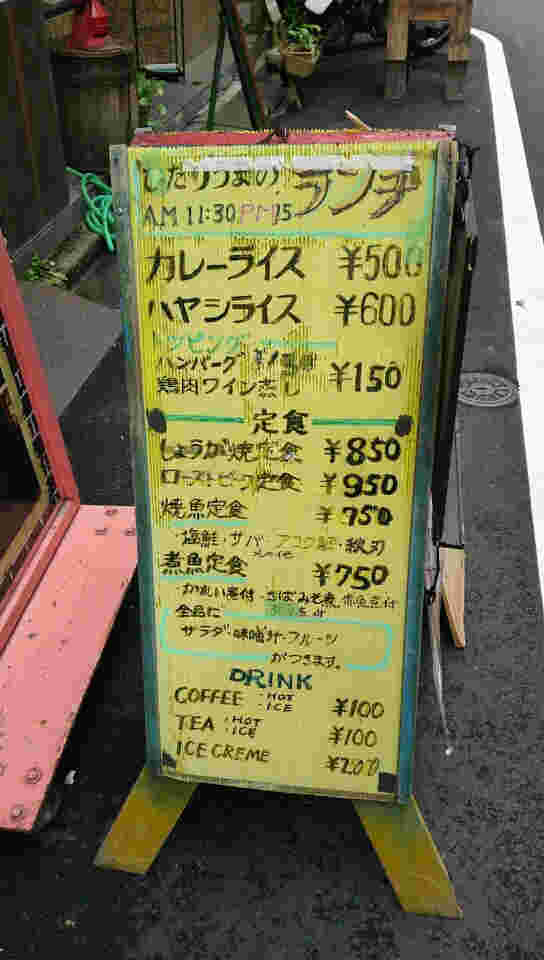 ひだりうまの ランチ
AM 11:30 PM 15
カレーライス ¥500
ハヤシライス ¥600
トッピング
ハンバーグ
鶏肉ワイン蒸し ¥150
定食
しょうが焼定食 ¥850
ローストビーフ定食 ¥950
焼魚定食 ¥750
塩鮭・サバ・
煮魚定食 ¥750
かれい煮付・さばみそ煮・赤魚煮付
全品に
サラダ・味噌汁・フルーツ
がつきます。
DRINK
COFFEE ・HOT ・ICE ¥100
TEA ・HOT ・ICE ¥100
ICE CREME ¥200